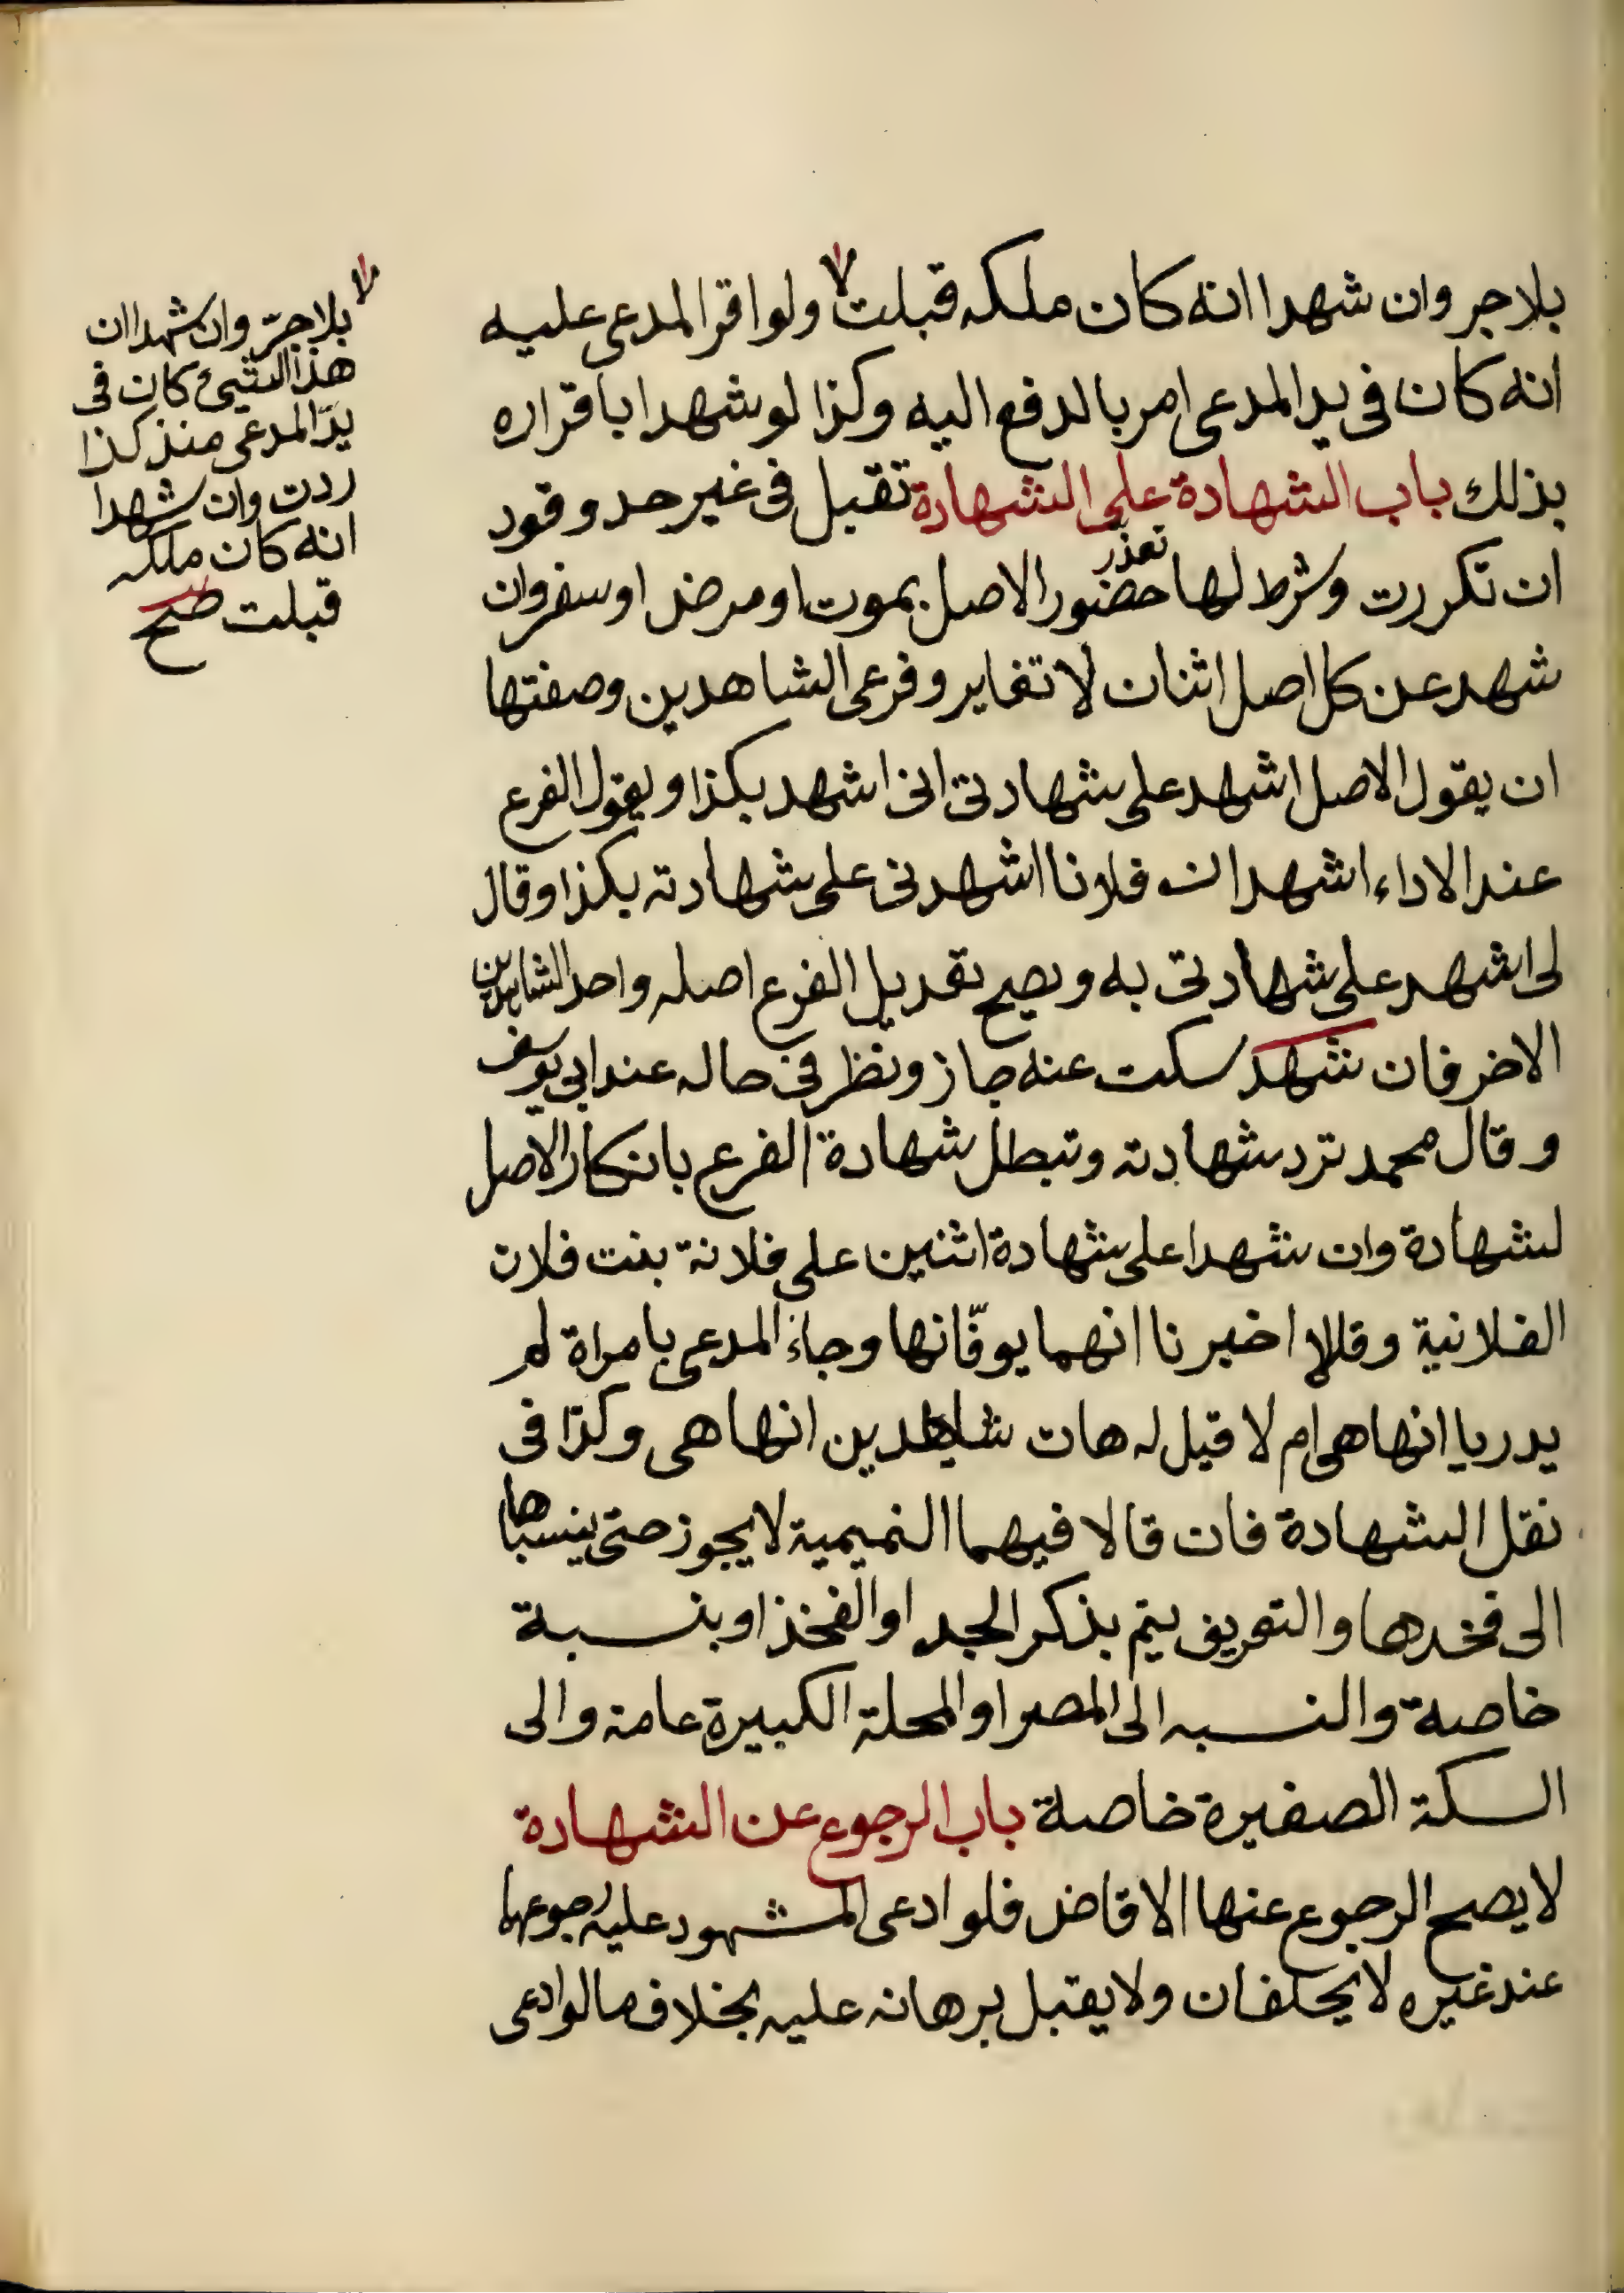 بلا جر وان شهدا انه كان ملكه قبلت ولو اقر المدعى عليه
انه كان فى يد المدعى امر بالدفع اليه وكذا لو شهدا باقراره
بذلك باب الشهادة على الشهادة تقبل فى غير حد وقود
ان تكررت وشرط لها تعذر حضور الاصل بموت او مرض او سفر وان
شهد عن كل اصل اثنان لا تغاير وفرعى الشاهدين وصفتها
ان يقول الاصل اشهد على شهادتى انى اشهد بكذا ويقول الفرع
عند الاداء اشهد ان فلانا اشهدنى على شهادته بكذا وقال
لى اشهد على شهادتى به ويصح تعديل الفرع اصله واحد الشاهدين
الاخر فان شهد سكت عنه جاز ونظر فى حاله عند ابى يوسف
وقال محمد ترد شهادته وتبطل شهادة الفرع بانكار الاصل
لشهادة وان شهدا على شهادة اثنين على فلانة بنت فلان
الفلانية وقالا اخبرنا انهما يوفّانها وجاء المدعى بامراة لم
يدريا انها هى ام لا قيل له هات شاهدين انها هى وكذا فى
نقل الشهادة فان قالا فيهما النميمية لا يجوز حتى ينسباها
الى فخدها والتعريف يتم بذكر الجد او الفخذ او بنسبة
خاصة والنسبه الى المصر او المحلة الكبيرة عامة والى
السكة الصغيرة خاصة باب الرجوع عن الشهادة
لا يصح الرجوع عنها الا قاض فلو ادعى المشهود عليه رجوعها
عند غيره لا يحلفان ولا يقبل برهانه عليه بخلاف ما لو ادعى
بلا جرّ وان شهدا ان
هذا الشيئ كان فى
يد المدعى منذ كذا
ردت وان شهدا
انه كان ملكه
قبلت صح